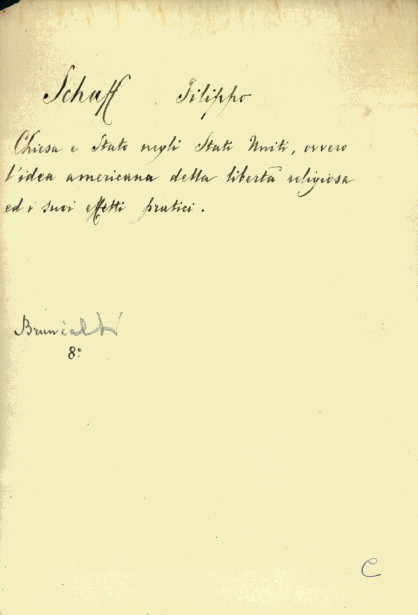 Schaff Filippo
Chiesa e Stato negli Stati Uniti, ovvero
l'idea americana della libertà religiosa
ed i suoi effetti pratici.
Brunialti
8°
C